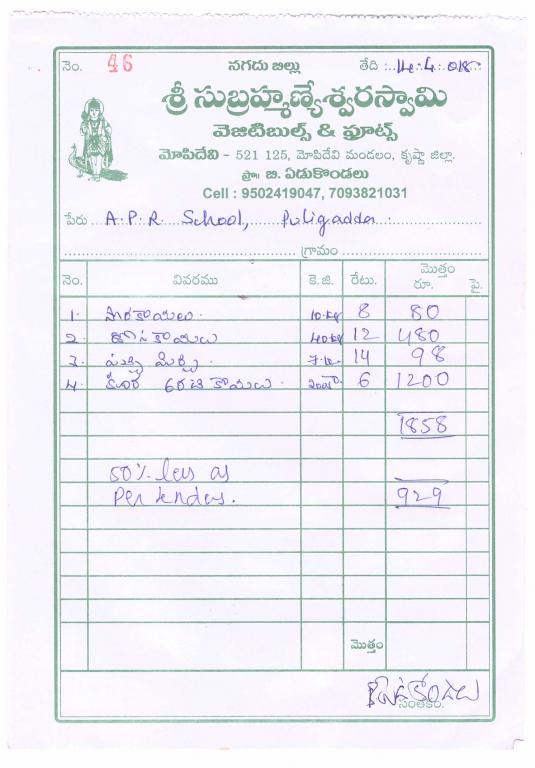 నెం. 46 నగదు బిల్లు తేది :. 14.4.018
శ్రీ సుబ్రహ్మణ్యేశ్వరస్వామి
వెజిటిబుల్స్ & ఫ్రూట్స్
మోపిదేవి - 521 125, మోపిదేవి మండలం, కృష్ణా జిల్లా.
ప్రొ॥ బి. ఏడుకొండలు
Cell : 9502419047, 7093821031
పేరు A.P.R. School, Puligadda.
గ్రామం
నెం. వివరము కె.జి. రేటు. మొత్తం రూ. పై.
1. సొరకాయలు. 10 kg 8 80
2. దోసకాయలు 40 kg 12 480
3. పచ్చి మిర్చి. 7 14 98
4. కూర కాయలు. 6 1200
1858
50% less as
Per tender. 929
మొత్తం
సంతకం.